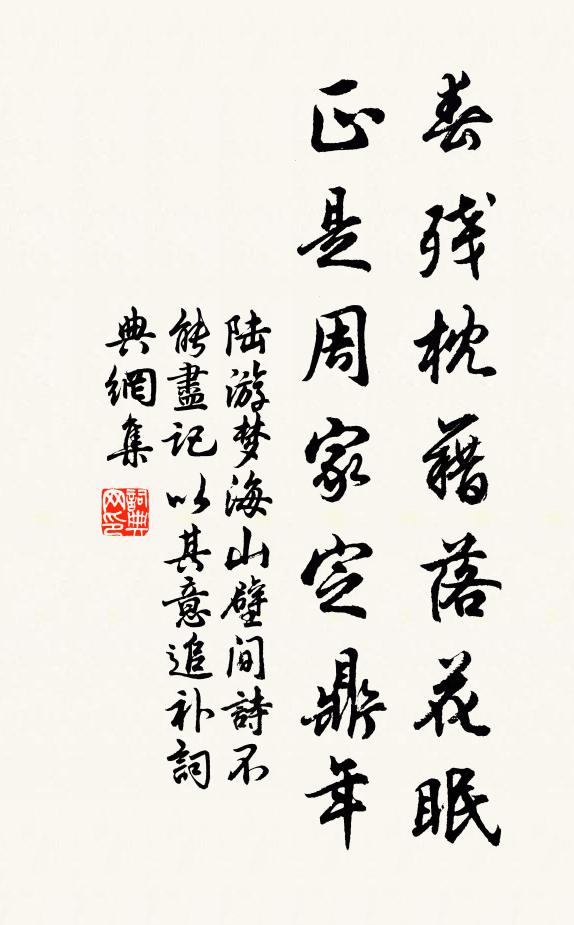 春残枕藉落花眠
正是周家定鼎年
陆游梦海山壁间詩不
能盡记以其意追补詞
典網集
詞典
网印